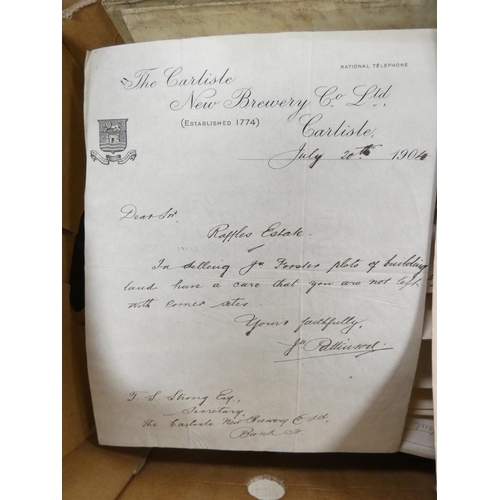 The Carlisle
NATIONAL TELEPHONE
New Brewery Co. Ltd.,
(ESTABLISHED 1774)
Carlisle,
July 20th 1904
Dear Sir,
Raffles Estate.
In selling Jn Forster plots of building
land have a care that you are not left
with corner sites.
Yours faithfully,
Jn Pattinson.
T S Strong Esq,
Secretary,
The Carlisle New Brewery Co Ltd,
Bank St